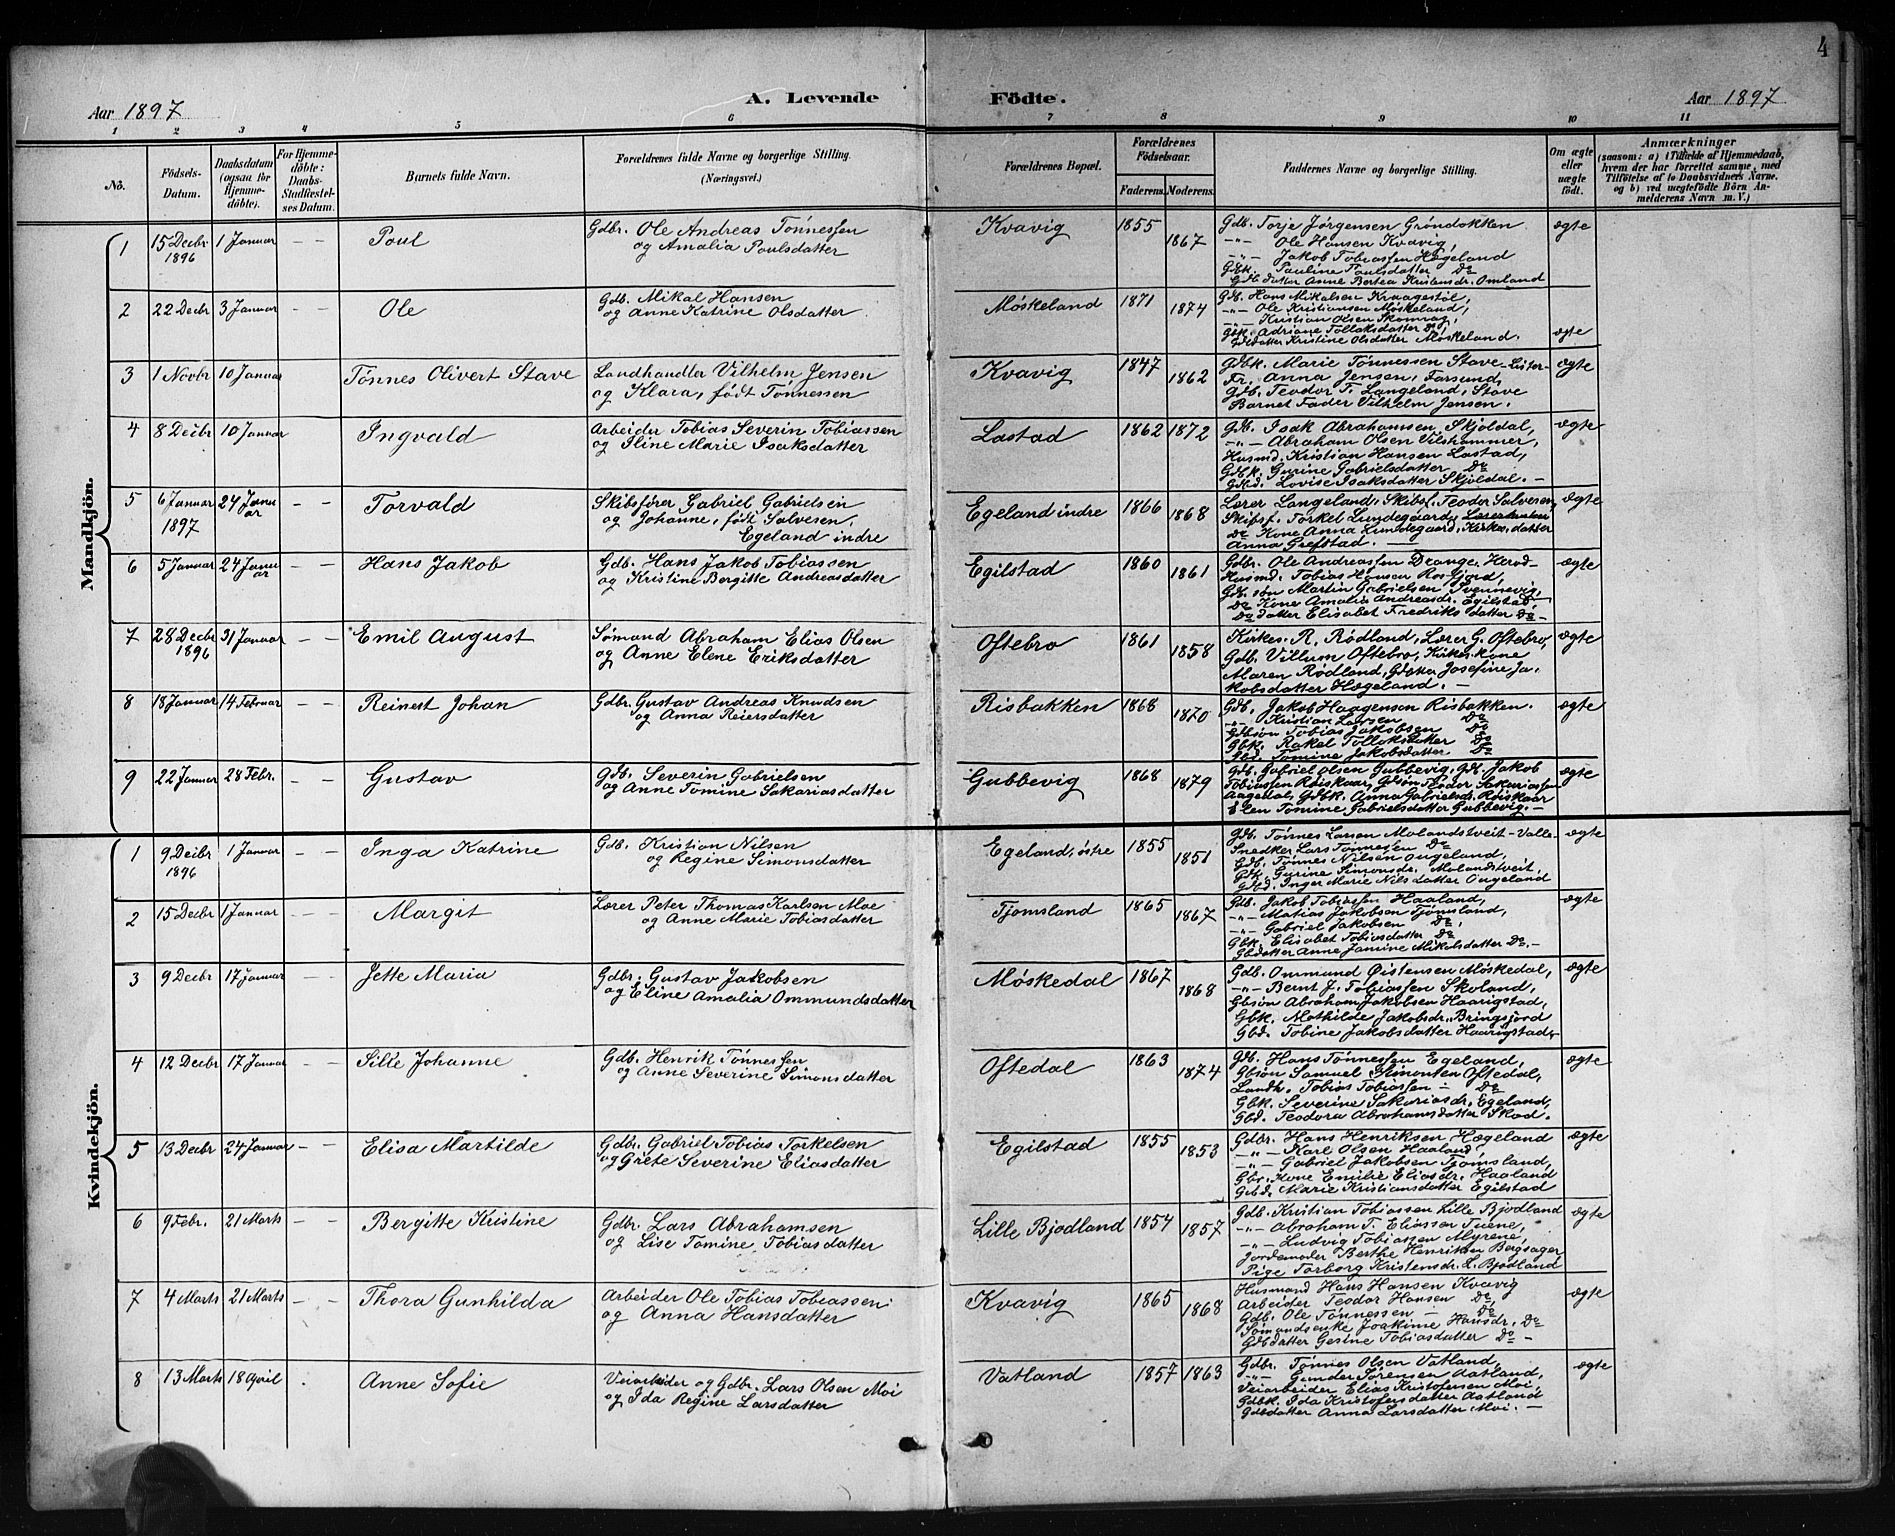 4
Aar 1897
A. Levende
Födte.
Aar 1897
1 2 3 4 5 6 7 8 9 10 11
No.
Födsels-Datum.
Daabsdatum (ogsaa for Hjemmedöbte).
For Hjemmedöbte: Daabs-Stadfæstelses Datum.
Barnets fulde Navn.
Forældrenes fulde Navne og borgerlige Stilling. (Næringsvei.)
Forældrenes Bopæl.
Forældrenes Födselsaar.
Faderens.
Moderens.
Faddernes Navne og borgerlige Stilling.
Om ægte eller uægte födt.
Anmærkninger
(saasom: a) i Tilfælde af Hjemmedaab, hvem der har forrettet samme, med Tilföielse af to Daabsvidners Navne, og b) ved uægtefödte Börn Anmelderens Navn m. V.)
Mandkjön.
1 15 Decbr 1896 1 Januar — — Poul
Gdbr. Ole Andreas Tønnessen
og Amalia Poulsdatter
Kvavig 1855 1867
Gdb. Torje Jørgensen Grøndokken
-"- Ole Hansen Kvavig,
-"- Jakob Tobiassen Hægeland
Gbk. Pauline Paulsdatter Do
Gdb datter Anne Bertea Kristensdr. Omland
ægte
2 22 Decbr 3 Januar — — Ole
Gdb. Mikal Hansen
og Anne Katrine Olsdatter
Møskeland 1871 1874
Gdb. Hans Mikalsen Kraagestøl,
-"- Ole Kristiansen Møskeland,
-"- Kristian Olsen
Gbk. Adriane Tollaksdatter Do,
Gdbdatter Kristine Olsdatter Møskeland.
ægte
3 1 Novbr 10 Januar Tönnes Olivert Stave
Landhandler Vilhelm Jensen
og Klara, født Tønnessen
Kvavig 1847 1862
Gdbk. Marie Tønnessen Stave Lister-
Fr. Anna Jensen, Farsund,
Gdb. Teodor T. Langeland, Stave
Barnet Fader Vilhelm Jensen.
ægte
4 8 Decbr 10 Januar Ingvald
Arbeider Tobias Severin Tobiassen
og Iline Marie Isaksdatter
Lastad 1862 1872
Gdb. Isak Abrahamsen Skjoldal,
-"- Abraham Olsen Vilshammer,
Husmd. Kristian Hansen Lastad,
Gdbk. Gurine Gabrielsdatter Do
Gdbd. Lovise Isaksdatter Skjoldal. —
ægte
5 6 Januar 1897 24 Januar — — Torvald
Skibsfører Gabriel Gabrielsen
og Johanne, født Salvesen,
Egeland indre
Egeland indre 1866 1868
Lærer Langeland, Skibsf. Teodor Salvesen,
Skibsf. Torkel Lundegaard,
Do Kone Anna Lundegaard, Kirkes. datter
Anna Grefstad. —
ægte
6 5 Januar 24 Januar — — Hans Jakob
Gdb. Hans Jakob Tobiassen
og Kristine Bergitte Andreasdatter
Egilstad 1860 1861
Gdbr. Ole Andreassen Drange, Herod-
Husmd. Tobias Hansen Rosfjord,
Gdb. søn Martin Gabrielsen Svennevig,
Do Kone Amalia Andreasdr. Egilstad,
Do datter Elisabet Fredriksdatter Do —
ægte
7 28 Decbr 1896 31 Januar — — Emil August
Sømand Abraham Elias Olsen
og Anne Elene Eriksdatter
Oftebro 1861 1858
Kirkes. R. Rødland, Lærer G. Oftebro,
Gdb. Villum Oftebro, Kirkes. kone
Maren Rødland, Gdbdatter Josefine Ja-
kobsdatter Hægeland. —
ægte
8 18 Januar 14 Februar — — Reinert Johan
Gdbr. Gustav Andreas Knudsen
og Anna Reiersdatter
Risbakken 1868 1870
Gdb. Jakob Haagensen Risbakken.
-"- Kristian Larsen Do
Gdbsøn Tobias Jakobsen Do
Gbk. Rakel Tollaksdatter Do
Gbd. Tomine Jakobsdatter Do
ægte
9 22 Januar 28 Febr. — — Gustav
Gdb. Severin Gabrielsen
og Anne Tomine Sakariasdatter
Gubbevig 1868 1879
Gdb. Gabriel Olsen Gubbevig, Gdb. Jakob
Tobiassen Røiskaar, Gdbsøn Teodor Sakariassen
Aagedal, Gdbk. Anna Gabrielsdr. Røiskaar
Elen Tomine Gabrielsdatter Gubbevig. —
ægte
Kvindekjön.
1 9 Decbr 1896 1 Januar — — Inga Katrine
Gdb. Kristian Nilsen
og Regine Simonsdatter
Egeland, østre 1855 1851
Gdb. Tønnes Larsen Molandstveit-Valle
Snedker Lars Tønnessen Do
Gdb. Tønnes Nilsen Ougeland,
Gbk. Gurine Simonsdr. Molandstveit,
Gbd. Inger Marie Nilsdatter Ougeland
ægte
2 15 Decbr 1 Januar — — Margit
Lærer Peter Thomas Karlsen Moe
og Anne Marie Tobiasdatter
Tjomsland 1865 1867
Gdb. Jakob Tobiassen Haaland,
-"- Matias Jakobsen Tjomsland,
-"- Gabriel Jakobsen Do,
Gbk. Elisabet Tobiasdatter Do
Gbdatter Anne Jamine Mikalsdatter Do. —
ægte
3 9 Decbr 17 Januar — — Jette Maria
Gdbr. Gustav Jakobsen
og Eline Amalia Ommundsdatter
Møskedal 1867 1868
Gdb. Ommund Øistensen Møskedal,
-"- Bernt J. Tobiassen Skoland,
Gbsøn Abraham Jakobsen Haarigstad,
Gbk. Mathilde Jakobsdr. Bringsjord
Gbd. Tobine Jakobsdatter Haarigstad.
ægte
4 12 Decbr 17 Januar — — Sille Johanne
Gdb. Henrik Tønnessen
og Anne Severine Simonsdatter
Oftedal 1863 1874
Gdb. Hans Tønnessen Egeland,
Gbsøn Samuel Simonsen Oftedal,
Landh. Tobias Tobiassen — Do
Gbk. Severine Sakariasdr. Egeland,
Gbd. Teodora Abrahamsdatter Skad.
ægte
5 13 Decbr 24 Januar — Elisa Martilde
Gdbr. Gabriel Tobias Torkelsen
og Grete Severine Eliasdatter
Egilstad 1855 1853
Gdbr. Hans Henriksen Hægeland
-"- Karl Olsen Haaland,
-"- Gabriel Jakobsen Tjomsland,
Gbr. Kone Emilie Eliasdr. Haaland
Gdbd. Marie Kristiansdatter Egilstad
ægte
6 9 Febr. 21 Marts — — Bergitte Kristine
Gdbr. Lars Abrahamsen
og Lise Tomine Tobiasdatter
Lille Bjodland 1854 1857
Gdb. Kristian Tobiassen Lille Bjodland
-"- Abraham T. Eliassen Teiene,
-"- Ludvig Tobiassen Myrene,
Jordemoder Berthe Henriksen Bergsager,
Pige Torborg Kristensdr. L. Bjodland
ægte
7 4 Marts 21 Marts — — Thora Gunhilda
Arbeider Ole Tobias Tobiassen
og Anna Hansdatter
Kvavig 1865 1868
Husmand Hans Hansen Kvavig
Arbeider Teodor Hansen Do,
Gdb. Ole Tønnessen — Do
Sømandsenke Joakime Hansdr. Do
Gdbdatter Gesine Tobiasdatter Do —
ægte
8 13 Marts 18 April Anne Sofie
Veiarbeider og Gdbr. Lars Olsen Moi
og Ida Regine Larsdatter
Vatland 1857 1863
Gdbr. Tønnes Olsen Vatland,
-"- Gunder Sørensen Aatland,
Veiarbeider Elias Kristofersen Moi,
Gdbk. Ida Kristofersdatter Aatland
Gdbdatter Anna Larsdatter Moi. —
ægte